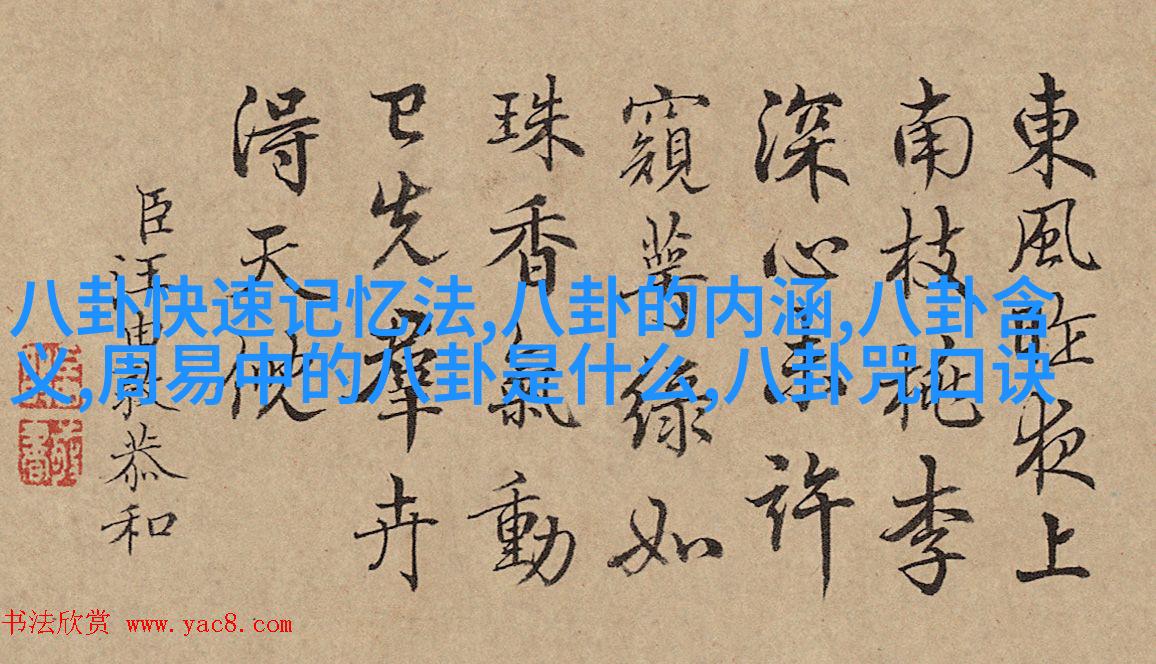 東風昨夜上
南枝桃李
深心未許
窺萼綠如
珠香氣動
已先羣卉
得天倪
臣汪由敦恭和
八卦快速记忆法,八卦的内涵,八卦含
义,周易中的八卦是什么,八卦咒口诀
书法欣赏 www.yac8.com